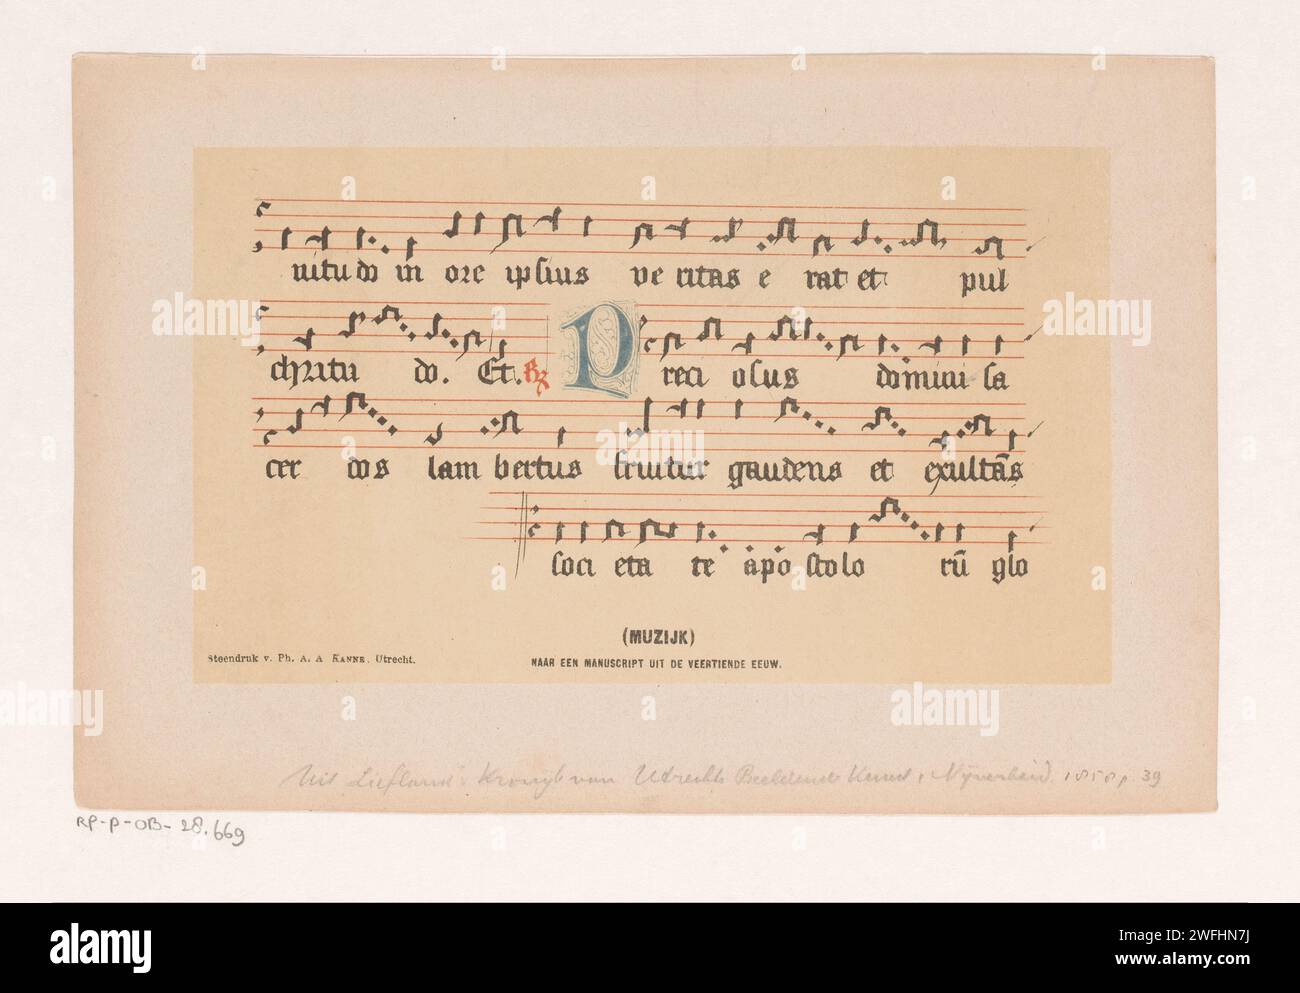 uitu do in ore ipsius ve ritas e rat et pul
chritu do. Et. R P reci osus domini sa
cer dos lam bertus fruitur gaudens et exultās
soci eta te apo stolo rū glo
(MUZIJK)
Steendruk v. Ph. A. A KANNE, Utrecht.
NAAR EEN MANUSCRIPT UIT DE VEERTIENDE EEUW.
Uit Liefland's Kronijk van Utrecht Beeldende Kunst, Nijverheid. 1858 p. 39
RP-P-OB-28.669
alamy
Image ID: 2WFHN7J
www.alamy.com